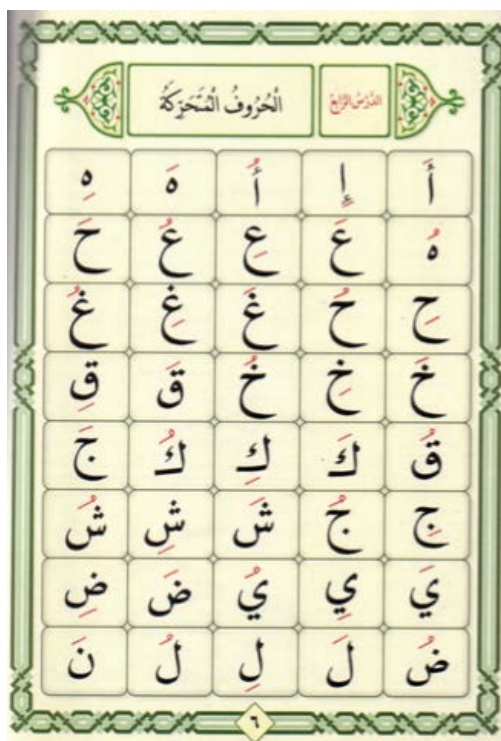 الدَّرْسُ الرَّابِعُ الْحُرُوفُ الْمُتَحَرِّكَةُ
أَ إِ أُ هَ هِ
هُ عَ عِ عُ حَ
حِ حُ غَ غِ غُ
خَ خِ خُ قَ قِ
قُ كَ كِ كُ جَ
جِ جُ شَ شِ شُ
يَ يِ يُ ضَ ضِ
ضُ لَ لِ لُ نَ
٦